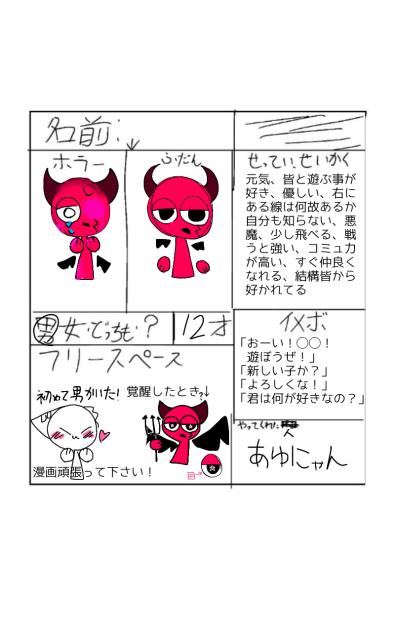 名前:
ホラー
ふだん
せってい、せいかく
元気、皆と遊ぶ事が
好き、優しい、右に
ある線は何故あるか
自分も知らない、悪
魔、少し飛べる、戦
うと強い、コミュ力
が高い、すぐ仲良く
なれる、結構皆から
好かれてる
男・女・どっちも・?
12才
イメボ
「おーい!○○!
遊ぼうぜ!」
「新しい子か?」
「よろしくな!」
「君は何が好きなの?」
フリースペース
初めて男かいた!
覚醒したとき↓
目→
漫画頑張って下さい!
やってくれた人
あゆにゃん